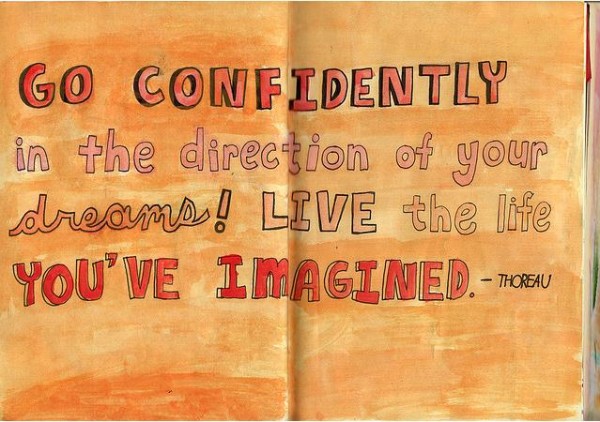 GO CONFIDENTLY
in the direction of your
dreams! LIVE the life
YOU'VE IMAGINED. - THOREAU